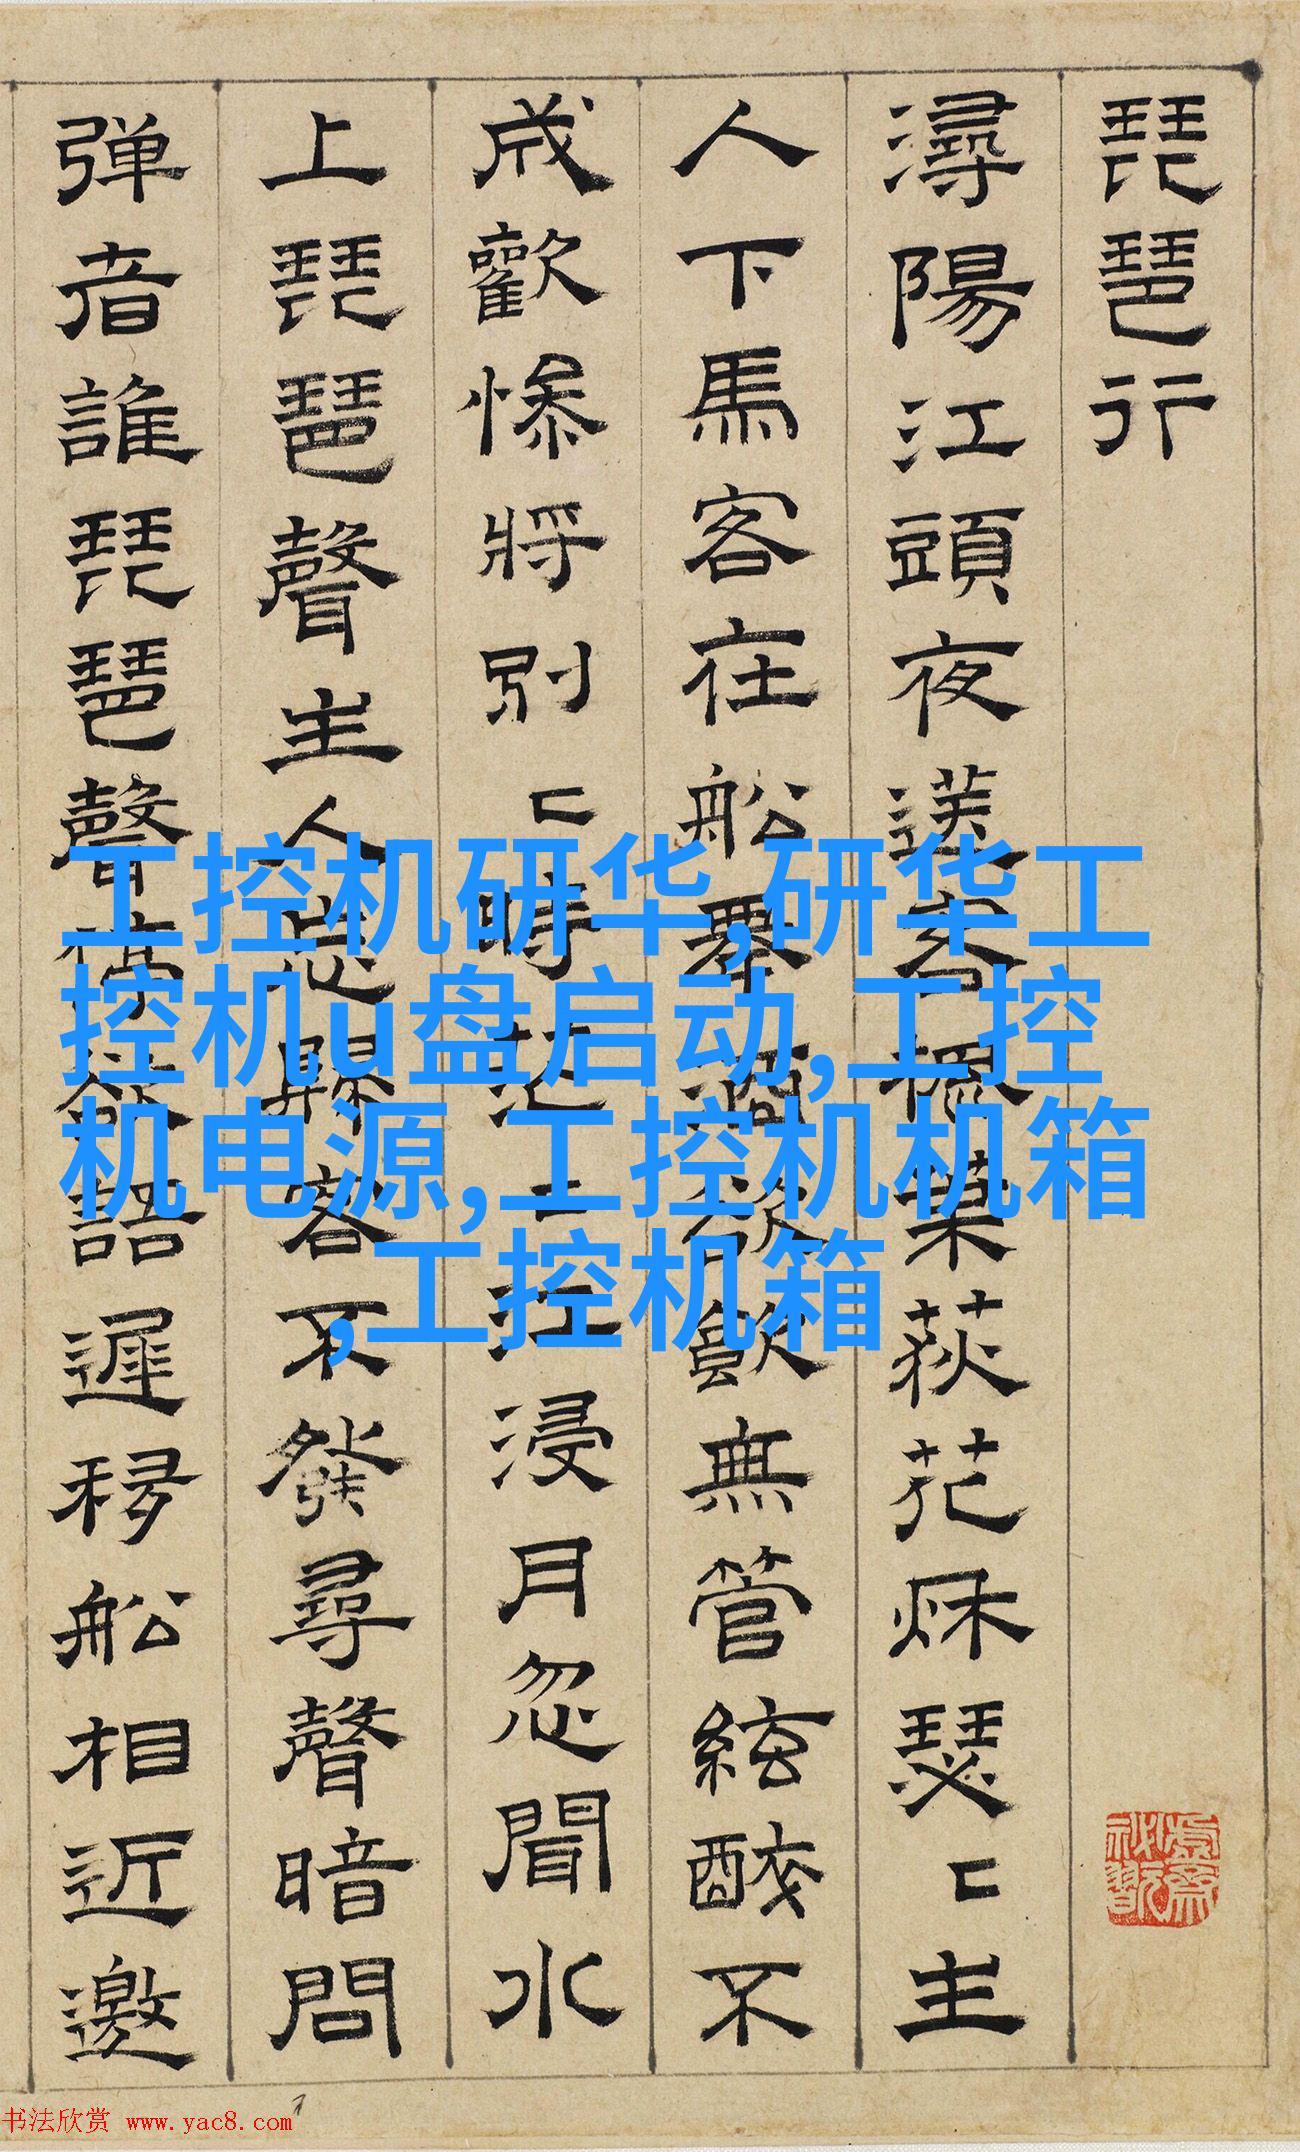 琵琶行
潯陽江頭夜送客楓葉荻花秌瑟〻主
人下馬客在船舉酒欲飲無管絃醉不
成歡慘將別〻時茫〻江浸月忽聞水
上琵琶聲主人忘歸客不發尋聲暗問
弹者誰琵琶聲停欲語遲移船相近邀
工控机研华,研华工
控机u盘启动,工控
机电源,工控机机箱
,工控机箱
书法欣赏 www.yac8.com